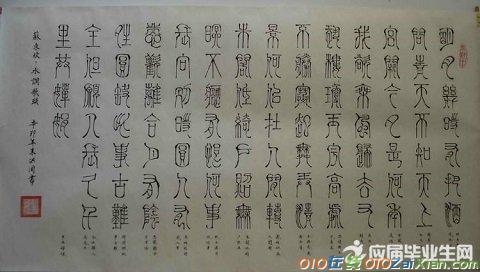 明月幾時有把酒
問青天不知天上
宮闕今夕是何年
我欲乘風歸去又
恐瓊樓玉宇高處
不勝寒起舞弄清
影何似在人間轉
朱閣低綺戶照無
眠不應有恨何事
長向別時圓人有
悲歡離合月有陰
晴圓缺此事古難
全但願人長久千
里共嬋娟
蘇東坡·水調歌頭
辛卯年
应届毕业生网
010在线 010zaixian.com